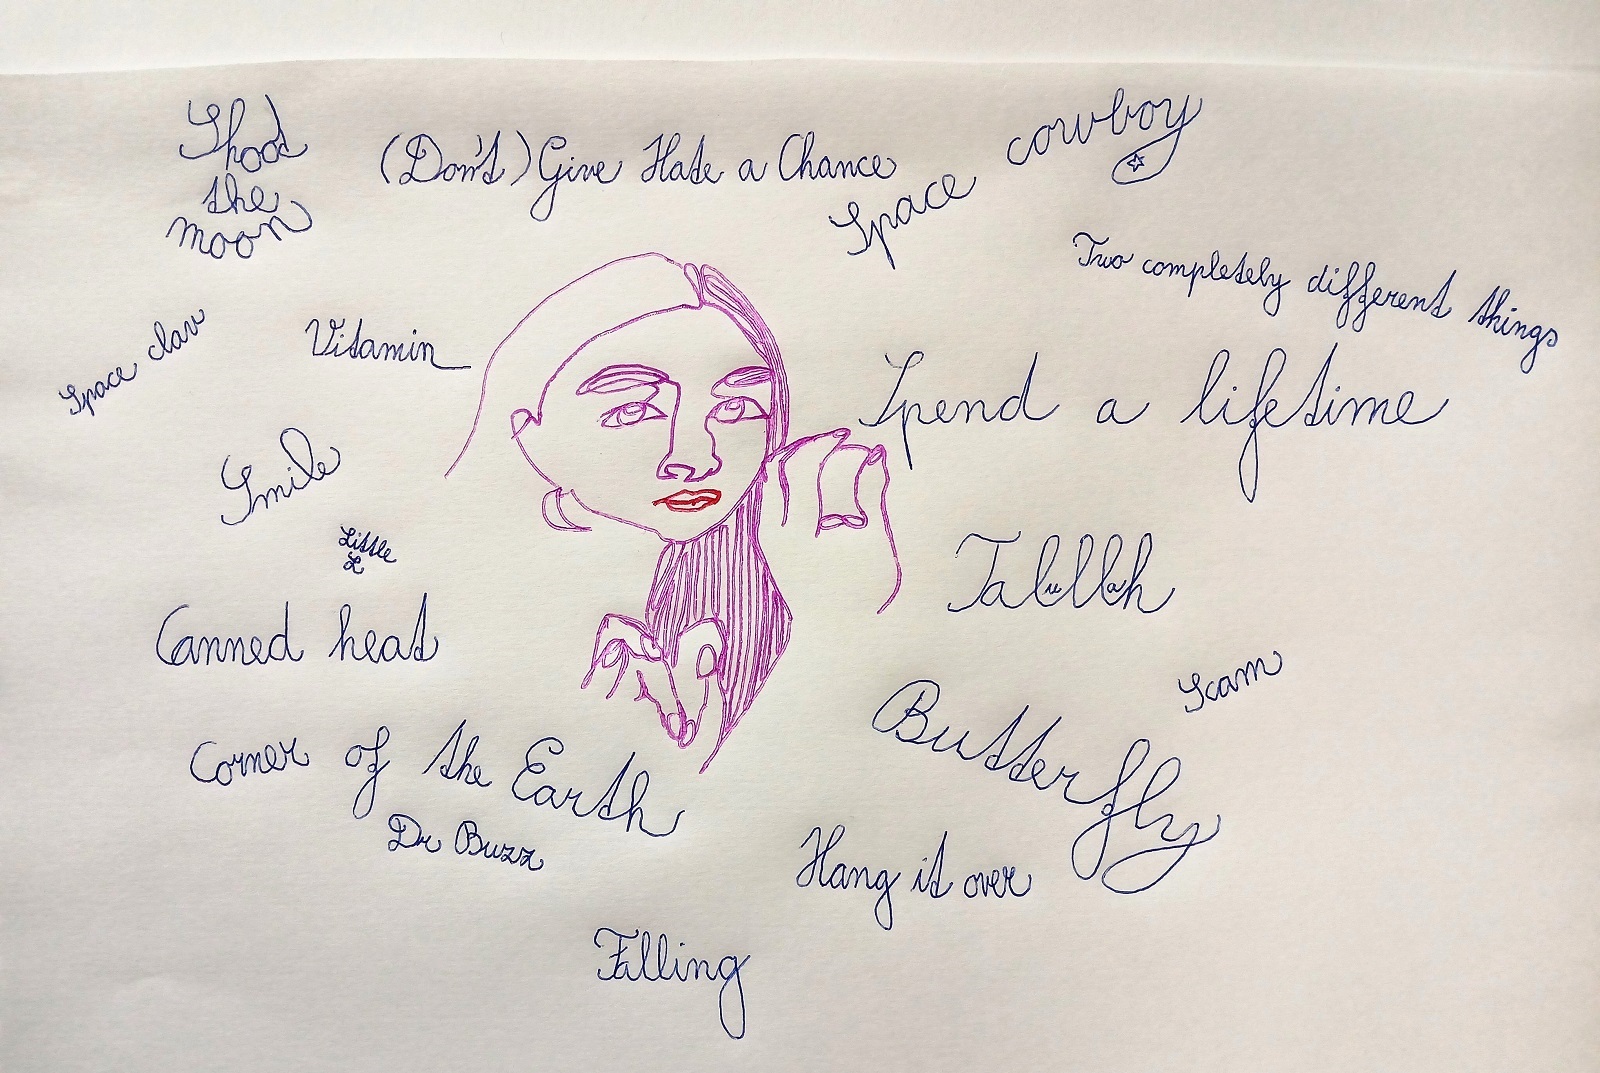 Shoot
the
moon
(Don't) Give Hate a Chance
Space cowboy
Two completely different things
Space clav
Vitamin
Spend a lifetime
Smile
Little
L
Talullah
Canned heat
Scam
Butterfly
Corner of the Earth
Dr Buzz
Hang it over
Falling